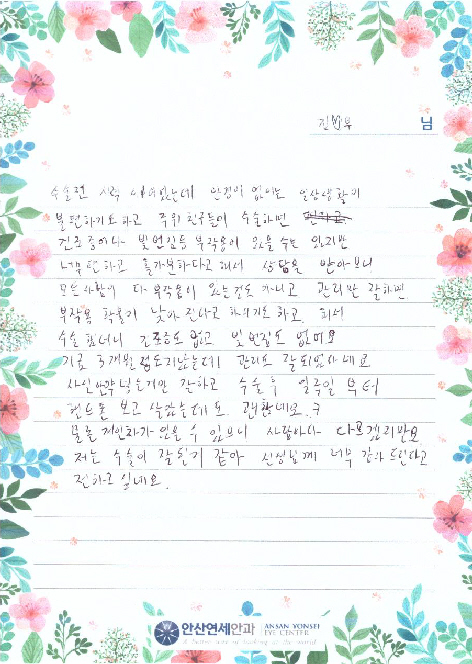 진 부 님
수술전 시력 안경이 없이는 일상생활이
불편하기도하고 주위 친구들이 수술하면
건조증이나 빛번짐등 부작용이 있을수는 있지만
너무편하고 홀가분하다고 해서 상담을 받아보니
모든사람이 다 부작용이 있는것도 아니고 관리만 잘하면
부작용 확률이 낮아진다고 하기도 하고 해서
수술 했더니 건조증도 없고 빛번짐도 없어요
지금 3개월정도지났는데 관리도 잘되었네요
안약넣는거만 잘하고 수술후 일주일 부터
핸드폰 보고 살았는데도 괜찮네요
물론 개인차가 있을 수 있으니 사람마다 다르겠지만요
저는 수술이 잘된거 같아 선생님께 너무 감사드린다고
전하고 싶네요.
안산연세안과 ANSAN YONSEI EYE CENTER
A better way of looking at the world